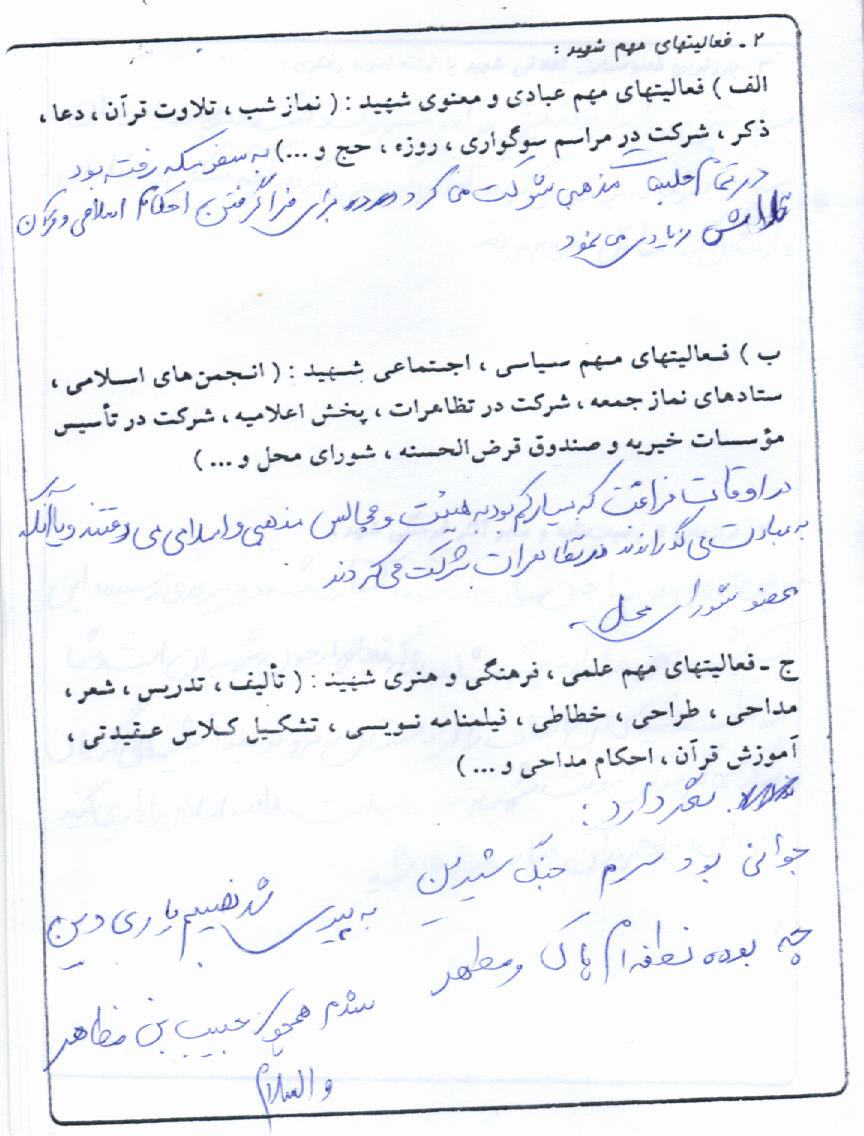 ۲ ـ فعالیتهای مهم شهید :
الف ) فعالیتهای مهم عبادی و معنوی شهید : ( نماز شب ، تلاوت قرآن ، دعا ،
ذکر ، شرکت در مراسم سوگواری ، روزه ، حج و ...) به سفر مکه رفته بود
در تمام جلسات مذهبی شرکت می کرد و برای فراگرفتن احکام اسلامی و قرآن
تلاش زیادی می نمود
ب ) فعالیتهای مهم سیاسی ، اجتماعی شهید : ( انجمن‌های اسلامی ،
ستادهای نماز جمعه ، شرکت در تظاهرات ، پخش اعلامیه ، شرکت در تأسیس
مؤسسات خیریه و صندوق قرض‌الحسنه ، شورای محل و ... )
در اوقات فراغت که بسیار کم بود به هیئت و مجالس مذهبی و اسلامی می رفتند و یا آنکه
به عبادت می گذراندند در تظاهرات شرکت می کردند
عضو شورای محل
ج ـ فعالیتهای مهم علمی ، فرهنگی و هنری شهید : ( تألیف ، تدریس ، شعر ،
مداحی ، طراحی ، خطاطی ، فیلمنامه نویسی ، تشکیل کلاس عقیدتی ،
آموزش قرآن ، احکام مداحی و ... )
شعر دارد :
جوانی بود سرم جنگ شیرین
به پیری شد نصیبم یاری دین
چه بوده نطفه ام پاک و مطهر
شدم همچو حبیب بن مظاهر
والسلام